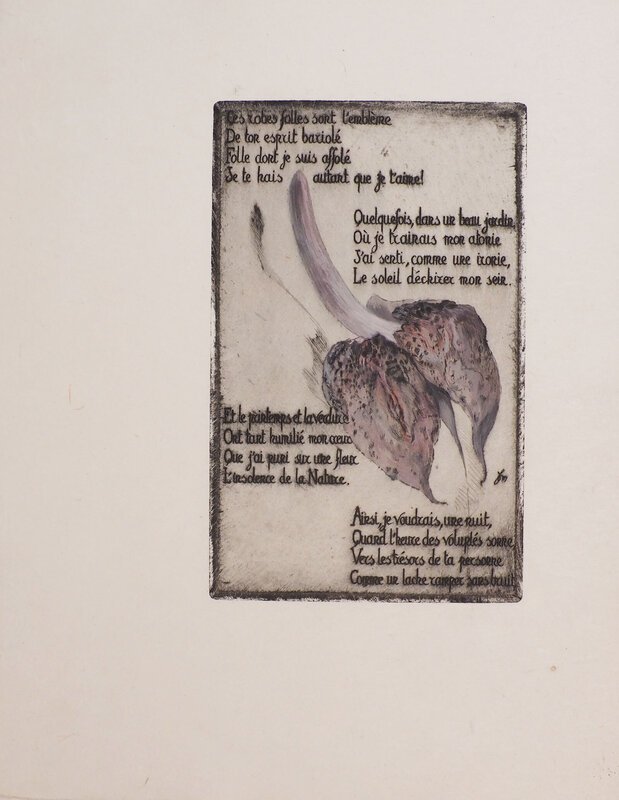 Ces robes folles sont l'emblème
De ton esprit bariolé
Folle dont je suis affolé
Je te hais autant que je t'aime!
Quelquefois, dans un beau jardin,
Où je trainais mon atonie
J'ai senti, comme une ironie,
Le soleil déchirer mon sein.
Et le printemps et la verdure
Ont tant humilié mon cœur
Que j'ai puni sur une fleur
L'insolence de la Nature.
Ainsi, je voudrais, une nuit,
Quand l'heure des voluptés sonne,
Vers les trésors de ta personne
Comme un lache ramper sans bruit